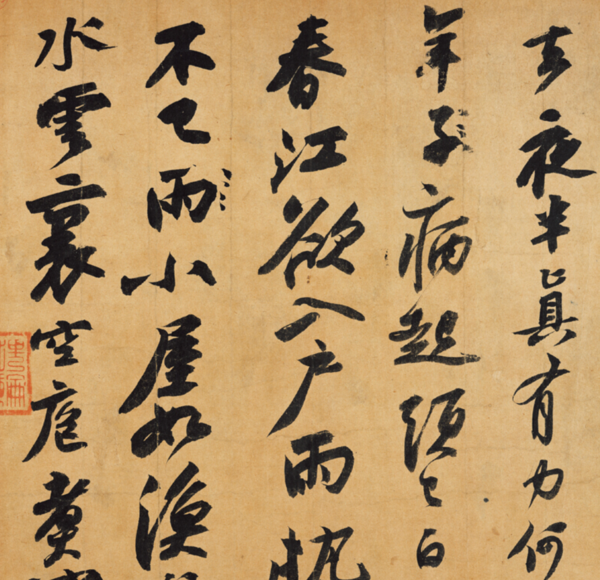 去夜半真有力何
年子病起須已白
春江欲入戶雨
不已雨小屋如漁
水雲裏空庖煮